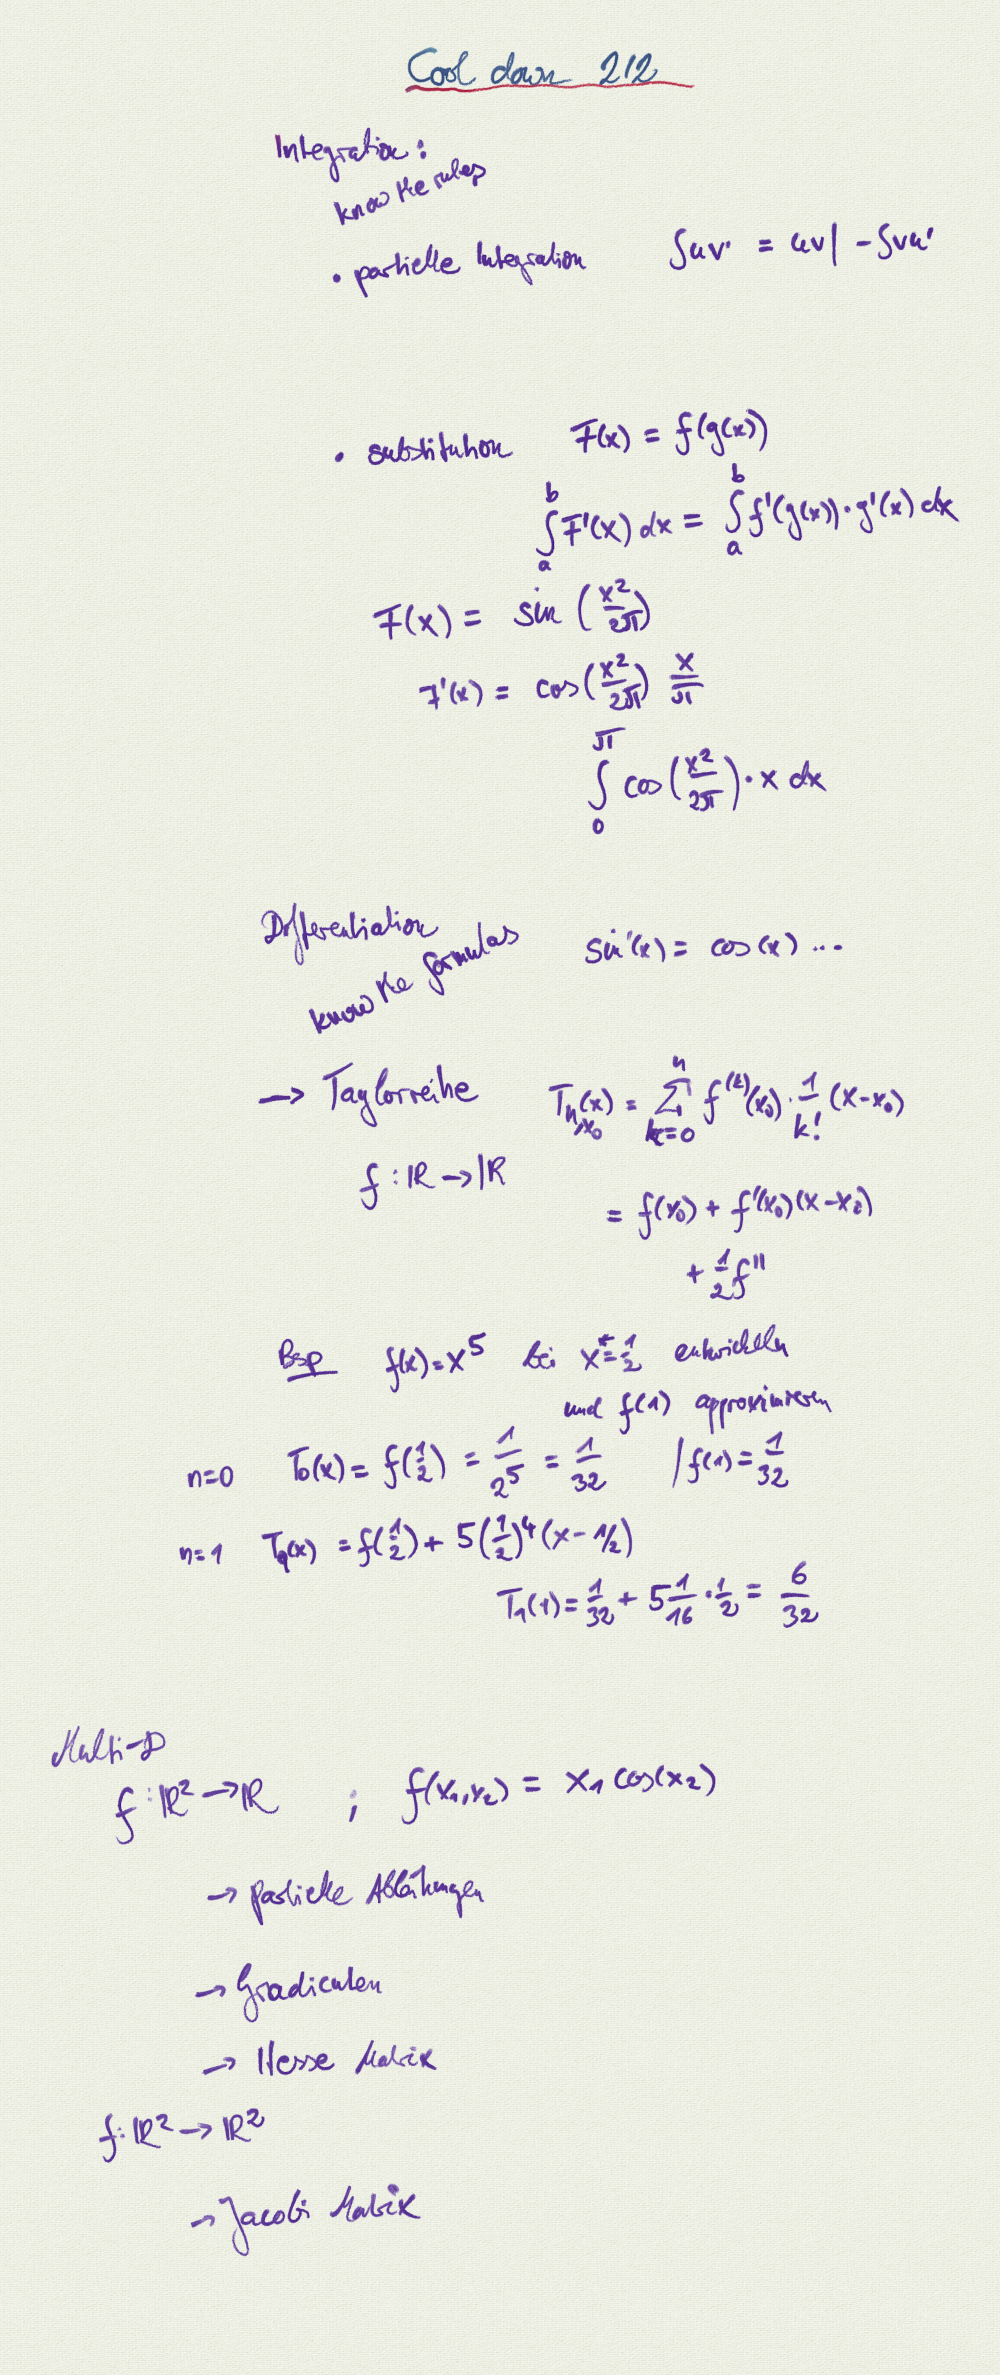 Cool down 212
Integration:
know the rules
• partielle Integration ∫uv' = uv| - ∫vu'
• substitution F(x) = f(g(x))
∫_a^b F'(x) dx = ∫_a^b f'(g(x))·g'(x) dx
F(x) = sin (x²/2π)
F'(x) = cos(x²/2π) x/π
∫_0^π cos(x²/2π)·x dx
Differentiation
know the formulas sin'(x) = cos(x) ...
→ Taylorreihe T_{n,x₀}(x) = Σ_{k=0}^n f^(k)(x₀)·1/k! (x-x₀)
f: ℝ → ℝ
= f(x₀) + f'(x₀)(x-x₀)
+ 1/2 f''
Bsp f(x)=x⁵ bei x*=1/2 entwickeln
und f(1) approximieren
n=0 T₀(x) = f(1/2) = 1/2⁵ = 1/32 | f(1) = 1/32
n=1 T₁(x) = f(1/2) + 5(1/2)⁴(x-1/2)
T₁(1) = 1/32 + 5 1/16 · 1/2 = 6/32
Multi-D
f: ℝ² → ℝ ; f(x₁,x₂) = x₁ cos(x₂)
→ partielle Ableitungen
→ Gradienten
→ Hesse Matrix
f: ℝ² → ℝ²
→ Jacobi Matrix